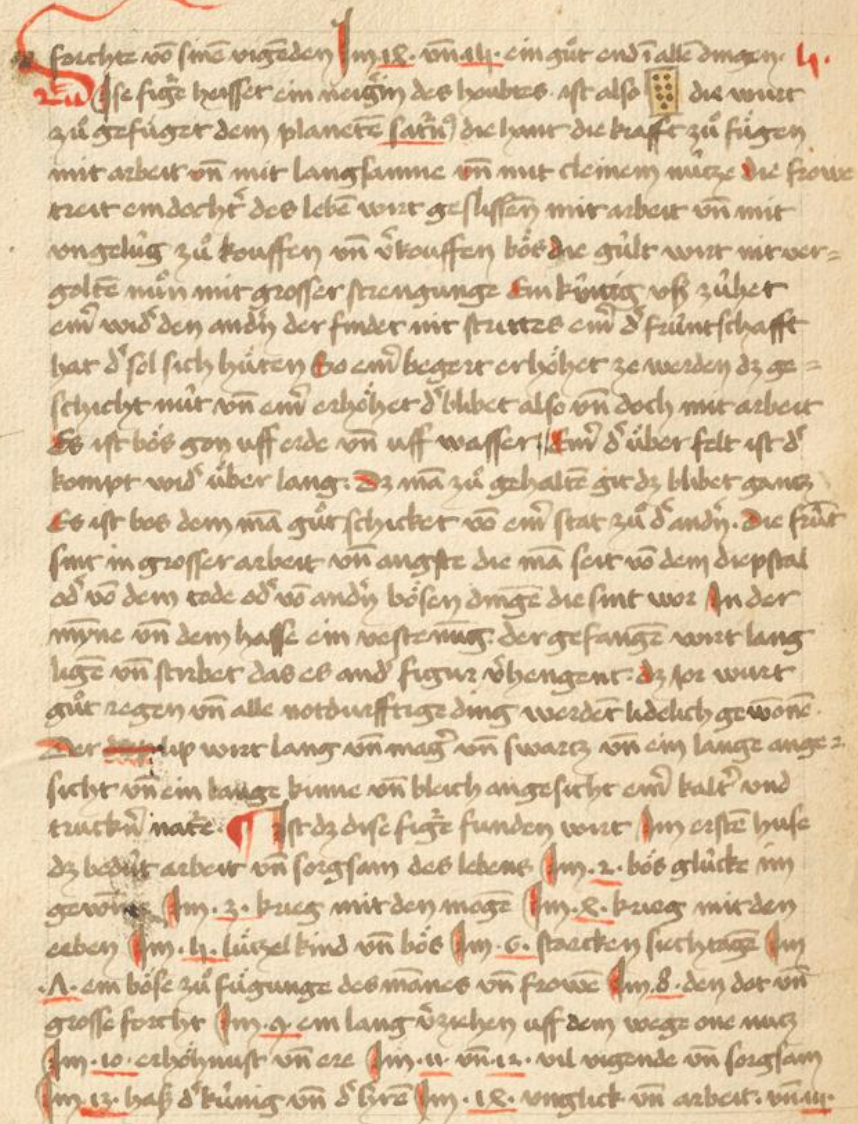 forchte vō sinē vigēden Im 1ꝝ. vn̄ .15. ein gůt end ī allē dingen. 5.
Dise figʳe heisset ein neigīn des houbtes. ist also die wurt
zů gefüget dem planetē satˀn9 die hant die krafft zů fůgen
mit arbeit vn̄ mit langsamme vn̄ mit cleinem nůtze Die frowe
treit ein dochtˀ des lebē wirt geslissen mit arbeit vn̄ mit
vngelůg zů kouffen vn̄ v̓kouffen bős die gůlt wirt nit ver=
goltē nůn mit grosser strengunge Ein kůnig vß zůhet
einˀ widˀ den andˀn der findet nit strittes einˀ dˀ frůntschafft
hat dˀ sol sich hůten So einˀ begert erhőhet ze werden dz ge=
schicht nůt vn̄ einˀ erhőhet dˀ blibet also vn̄ doch mit arbeit
Es ist bős gon uff erde vn̄ uff wasser. Einˀ dˀ ůber felt ist dˀ
kompt widˀ ůber lang. Dz mā zů gehaltē git dz blibet gantz
Es ist bos dem mā gůt schicket vō einˀ stat zů dˀ andˀn. Die frůt
sint in grosser arbeit vn̄ angste die mā seit vō dem diepstal
odˀ vō dem tode odˀ vō andˀn bősen dingē die sint wor In der
mȳne vn̄ dem hasse ein vestenūg. der gefangē wirt lang
ligē vn̄ stirbet das es andˀ figur v̓hengent. dz jor wurt
gůt regen vn̄ alle notdurfftige ding werdēt lidelich gewonē.
Der lip wirt lang vn̄ magˀ vn̄ swartz vn̄ ein lange ange=
sicht vn̄ ein lange kinne vn̄ bleich angesicht einˀ kaltˀ vnd
truckˀn natˀe. ¶ Ist dz dise figˀe funden wirt Im erstē huse
dz bedůt arbeit vn̄ sorgsam des lebens Im .2. bős glůcke im
gewinne Im .3. krieg mit den magē Im .ꝝ. krieg mit den
erben Im .5. lůtzel kind vn̄ bős Im .6. starcken siechtagē Im
.ʌ. ein bőse zů fůgunge des mānes vn̄ frowē Im .8. den dot vn̄
grosse forcht Im .9. ein lang v̓ziehen uff dem wege one nutz
Im .10. erhőhnust vn̄ ere Im .11. vn̄ .12. vil vigende vn̄ sorgsam
Im .13. haß dˀ kůnig vn̄ dˀ hˀrē Im .1ꝝ. vnglick vn̄ arbeit. vn̄